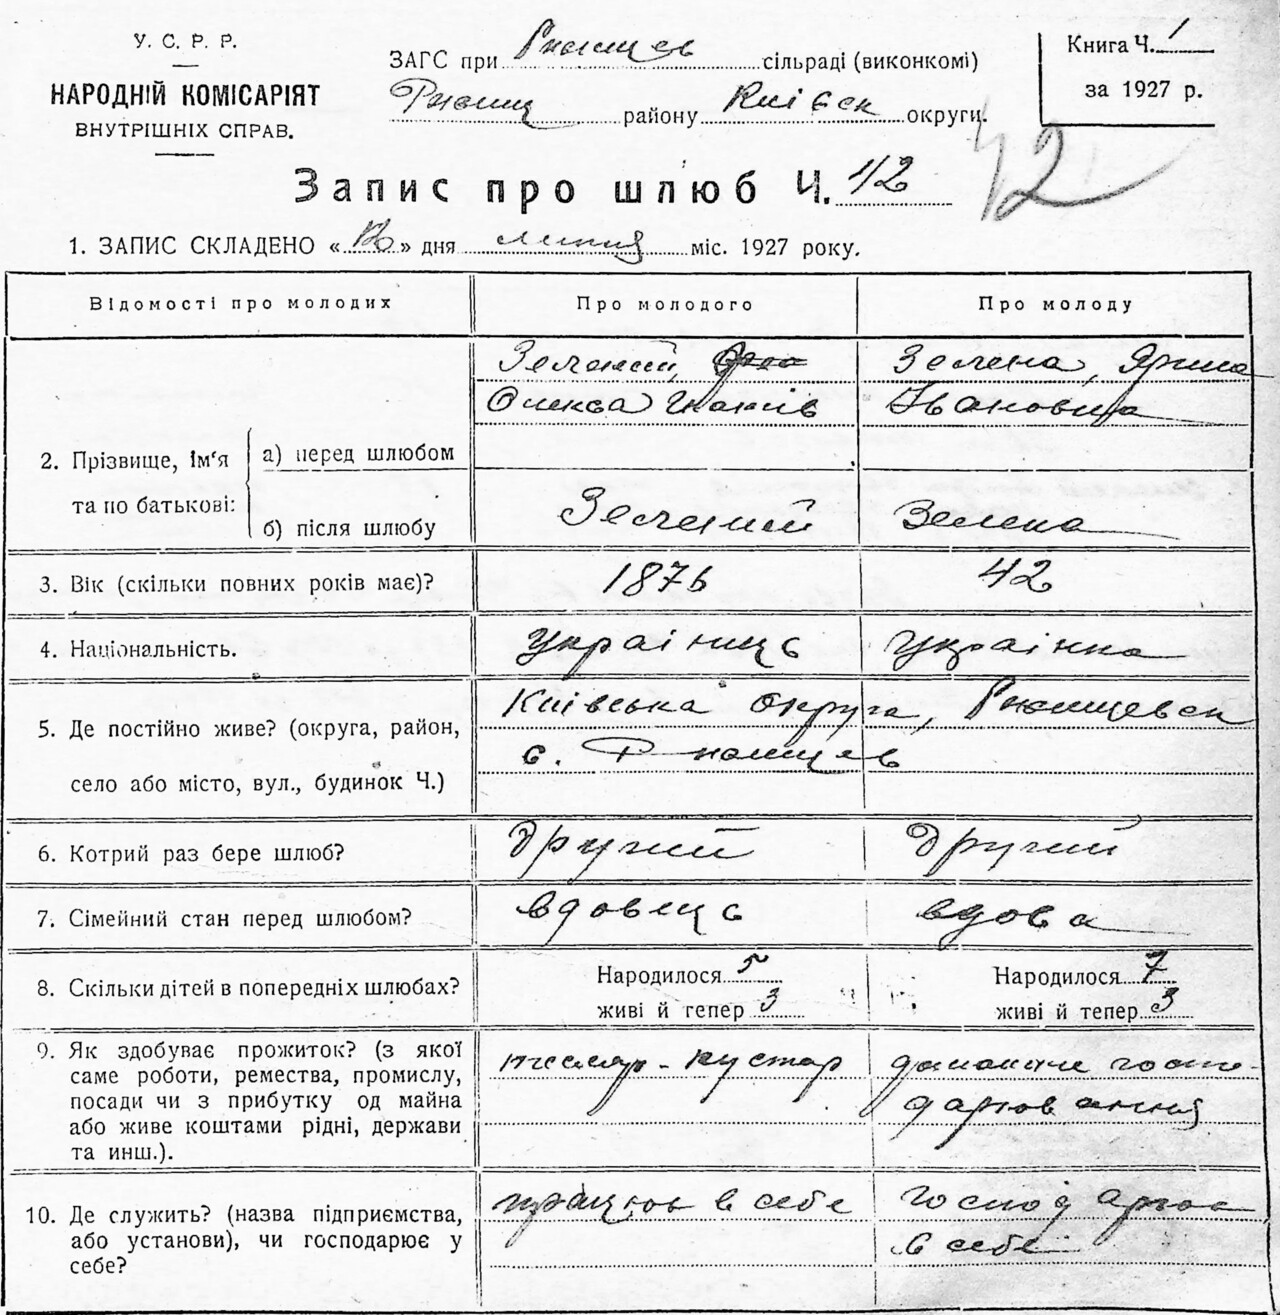 У. С. Р. Р.
НАРОДНІЙ КОМІСАРІЯТ
ВНУТРІШНІХ СПРАВ.
ЗАГС при Ржищев сільраді (виконкомі)
Ржищ району Київск округи.
Книга Ч. 1
за 1927 р.
Запис про шлюб Ч. 42
42
1. ЗАПИС СКЛАДЕНО « » дня липня міс. 1927 року.
Відомості про молодих
Про молодого
Про молоду
2. Прізвище, ім'я та по батькові:
а) перед шлюбом
Зелений,
Олекса Гнатів
Зелена, Ярина
Івановна
б) після шлюбу
Зелений
Зелена
3. Вік (скільки повних років має)?
1876
42
4. Національність.
Українць
Українка
5. Де постійно живе? (округа, район,
село або місто, вул., будинок Ч.)
Київська округа, Ржищевск
с. Ржищев
6. Котрий раз бере шлюб?
другий
другий
7. Сімейний стан перед шлюбом?
вдовець
вдова
8. Скільки дітей в попередніх шлюбах?
Народилося 5
живі й тепер 3
Народилося 7
живі й тепер 3
9. Як здобуває прожиток? (з якої
саме роботи, ремества, промислу,
посади чи з прибутку од майна
або живе коштами рідні, держави
та инш.).
кустар
домашнє госпо-
дарювання
10. Де служить? (назва підприємства,
або установи), чи господарює у
себе?
працює в себе
господарює
в себе